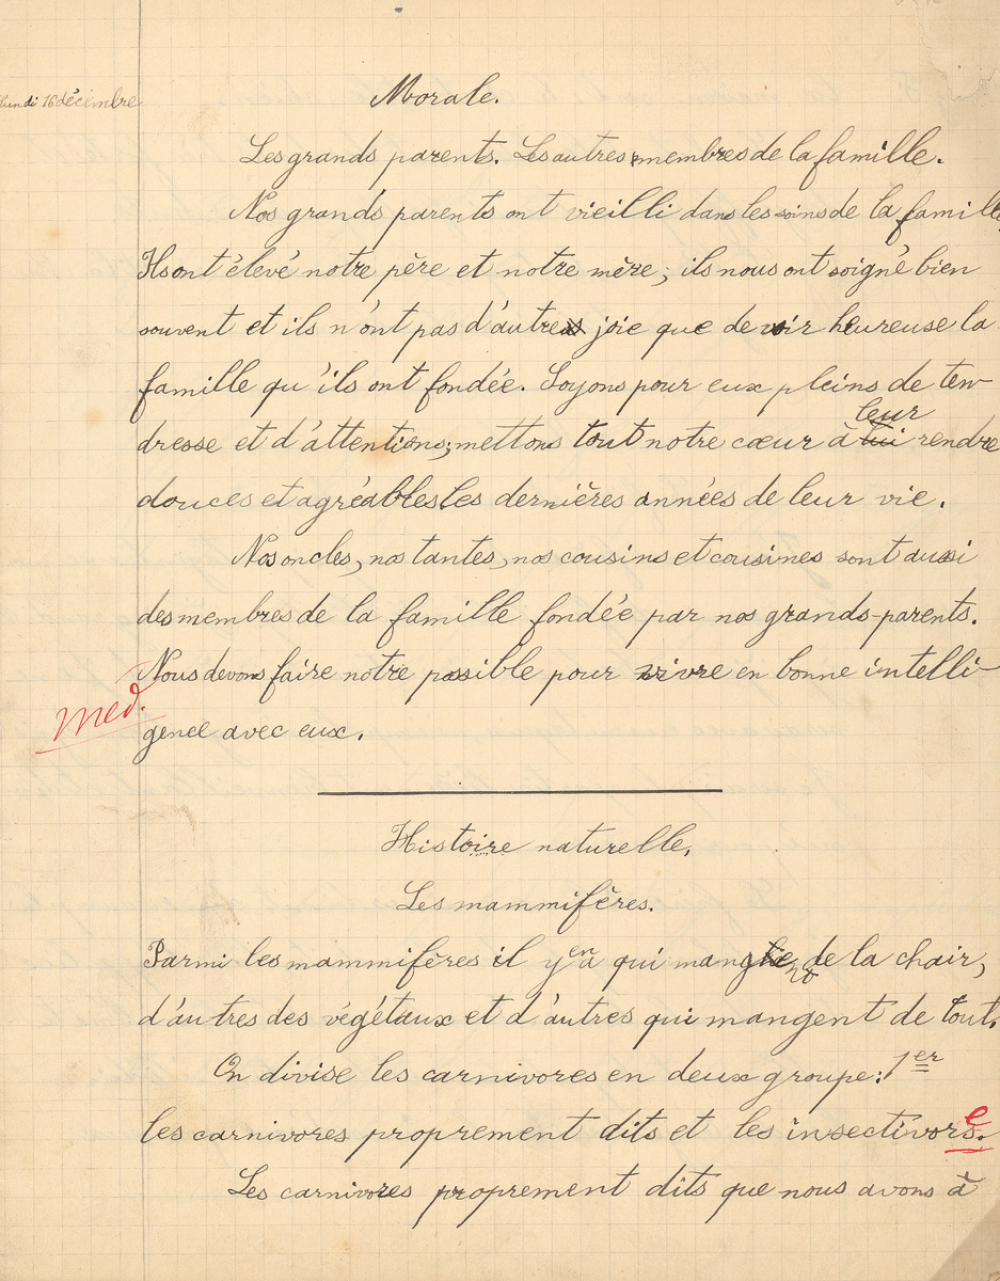 lundi 16 décembre
Morale.
Les grands parents. Les autres membres de la famille.
Nos grands parents ont vieilli dans les soins de la famille.
Ils ont élevé notre père et notre mère; ils nous ont soigné bien
souvent et ils n'ont pas d'autre joie que de voir heureuse la
famille qu'ils ont fondée. Soyons pour eux pleins de ten-
dresse et d'attentions; mettons tout notre cœur à lui leur rendre
douces et agréables les dernières années de leur vie.
Nos oncles, nos tantes, nos cousins et cousines sont aussi
des membres de la famille fondée par nos grands-parents.
Nous devons faire notre possible pour vivre en bonne intelli-
med.
gence avec eux.
Histoire naturelle.
Les mammifères.
Parmi les mammifères il y en a qui mange de la chair,
d'autres des végétaux et d'autres qui mangent de tout.
On divise les carnivores en deux groupe: 1er
les carnivores proprement dits et les insectivors. e
Les carnivores proprement dits que nous avons à